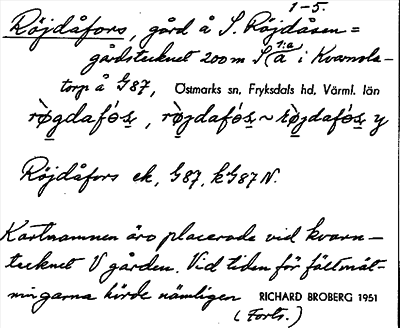 1-5.
Röjdåfors, gård å S. Röjdåsen =
gårdstecknet 200 m S 1:a a i Kvarnla-
torp å G87, Östmarks sn, Fryksdals hd. Värml. län
Röjdåfors ek, G87, kG87N.
Kartnamnen äro placerade vid kvarn-
tecknet V gården. Vid tiden för fältmät-
ningarna hörde nämligen RICHARD BROBERG 1951
(Forts.)